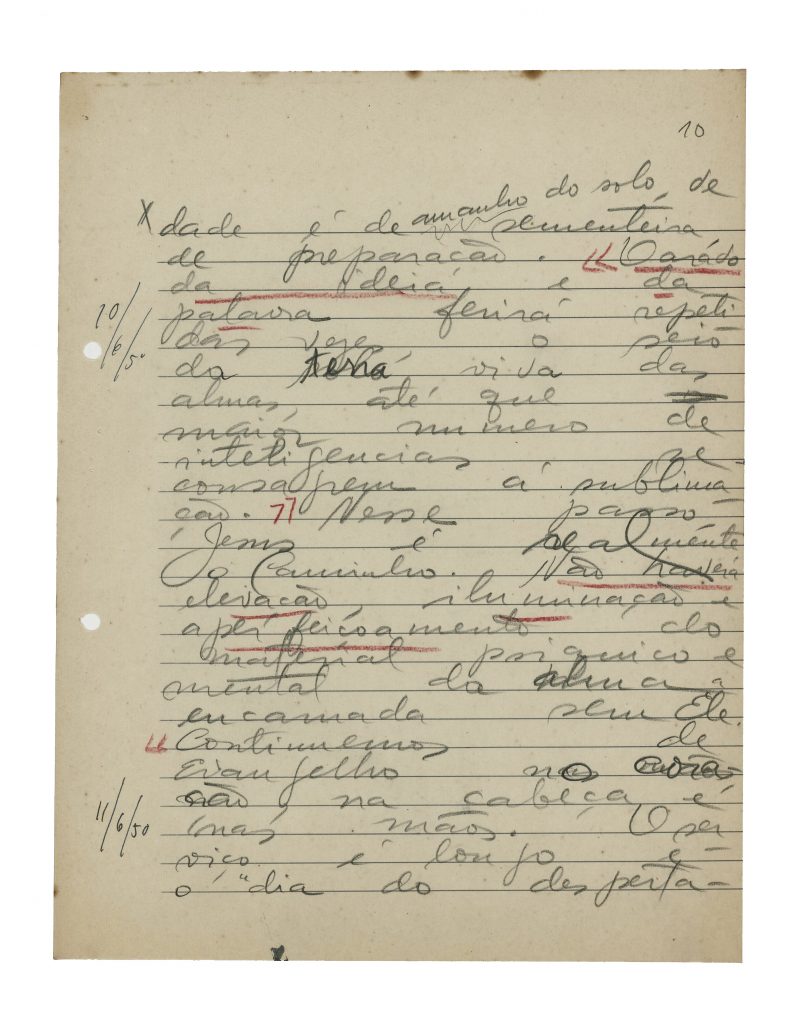 10
X dade é de amanho do solo, de
sementeira
de preparação. "O arado
da ideia e da
10/6/50
palavra ferirá repeti
das vezes o seio
da terra viva das
almas, até que
maior numero de
inteligencias se
consagrem á sublima
ção." Nesse passo
Jesus é realmente
o Caminho. Não haverá
elevação, iluminação e
aperfeiçoamento do
material psiquico e
mental da alma
encarnada sem Ele.
"Continuemos de
Evangelho no cora-
ção na cabeça e
11/6/50
nas mãos. O ser
viço é longo e
o "dia do desperta-